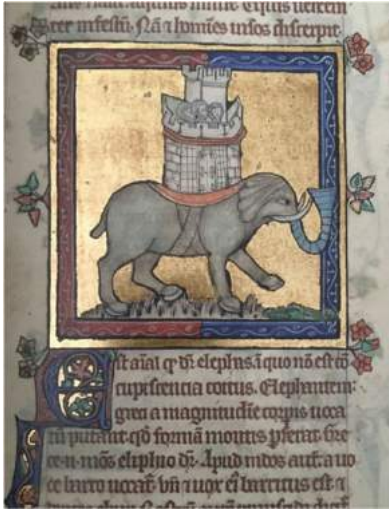 Equis uehem
ter infesti. Nā ⁊ homīes uisos discerpit.
Est aīal qd̄ dr̄ elephās ī quo nō est cō
cupiscencia coitus. Elephantem
greci a magnitudīe corpis uoca
tū putant qd̄ formā montis p̄ferat. Gre
ce .n. mōs eliphio dr̄. Apud indos aut̄ a uo
ce barro uocat̄ vn̄ ⁊ uox eī barritus est ⁊